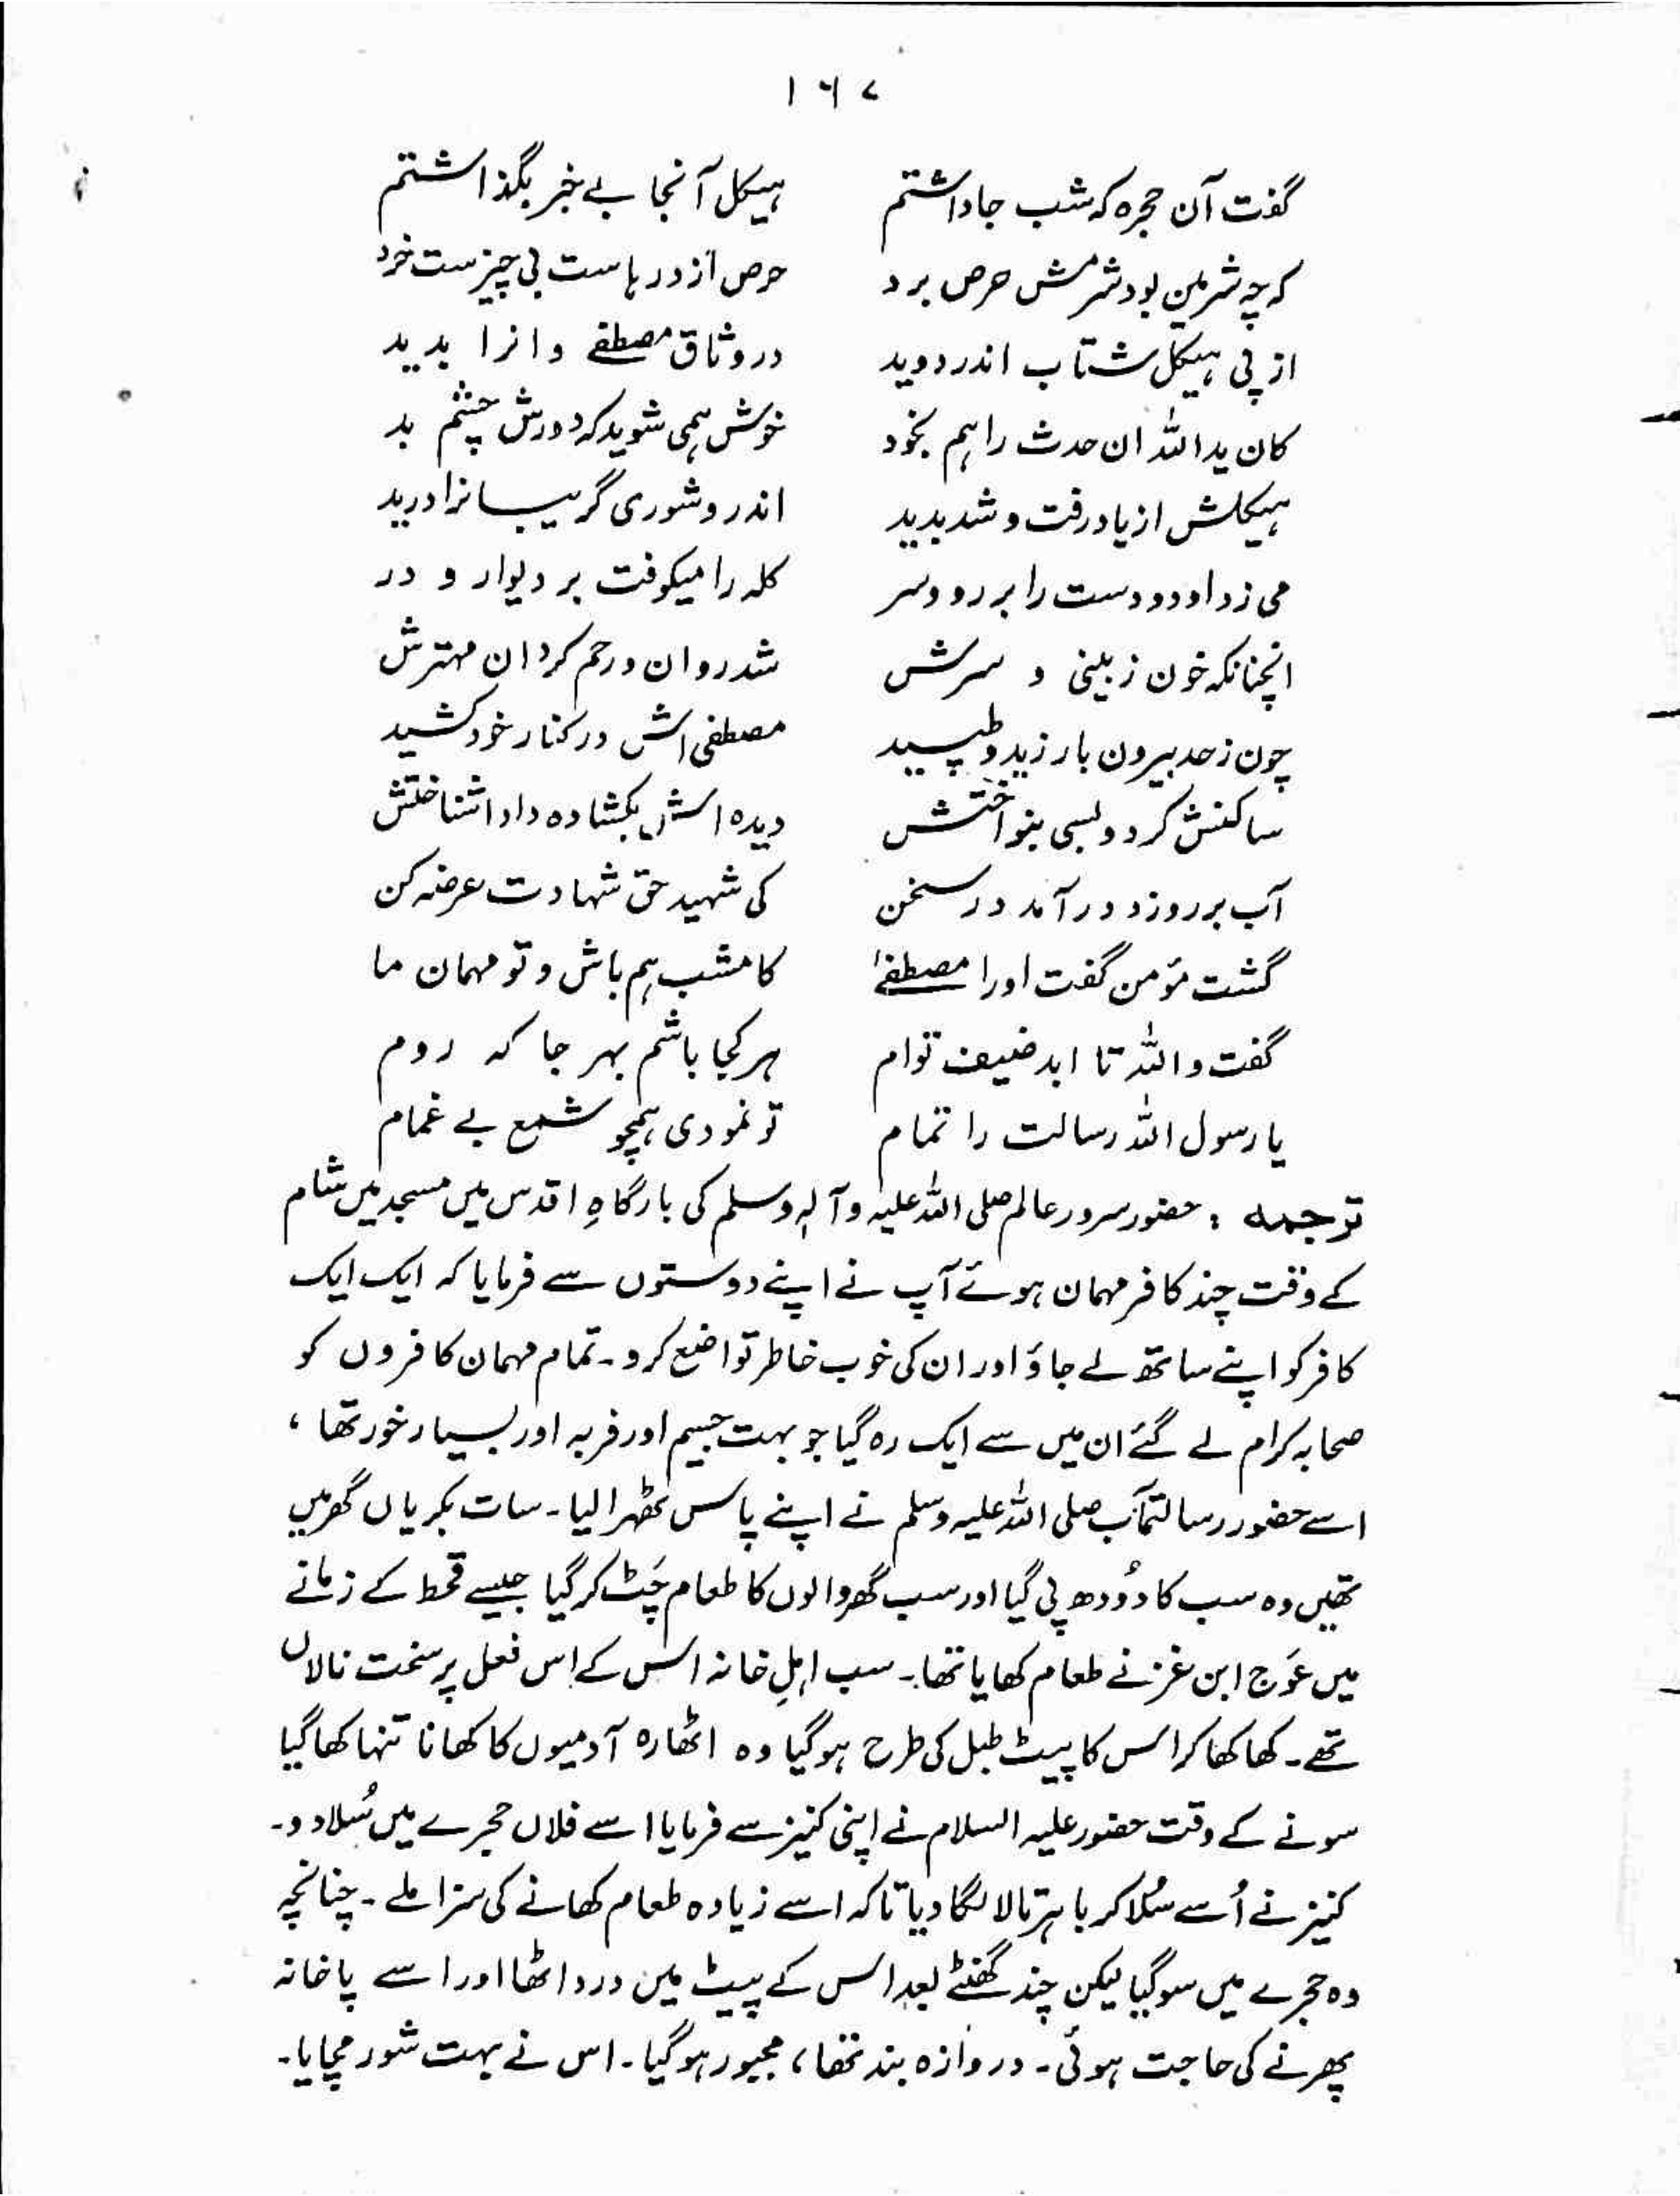 ۱۶۷
گفت آن حجرہ کہ شب جا داشتم ہیکل آنجا بے خبر بگذاشتم
کہ چہ شرمین بود شرمش حرص برد حرص اژدرہاست نی چیزست خرد
از پی ہیکل شتاب اندر دوید در وثاق مصطفے وانرا بدید
کان ید اللہ ان حدث را ہم بخود خوش ہمی شوید کہ دورش چشم بد
ہیکلش از یاد رفت و شد بدید اندرو شوری گریبانرا درید
می زد او دو دست را بر رو و سر کلہ را میکوفت بر دیوار و در
انچنانکہ خون ز بینی و سرش شد روان و رحم کرد ان مہترش
چون ز حد بیرون بلرزید و طپید مصطفی اش در کنار خود کشید
ساکنش کرد و بسی بنواختش دیدہ اش بکشادہ داد اشناختش
آب بر رو زد در آمد در سخن کی شہید حق شہادت عرضہ کن
گشت مؤمن گفت اورا مصطفےٰ کامشب ہم باش و تو مہمان ما
گفت واللہ تا ابد ضیف توام ہر کجا باشم بہر جا کہ روم
یا رسول اللہ رسالت را تمام تو نمودی ہمچو شمع بے غمام
ترجمہ : حضور سرور عالم صلی اللہ علیہ وآلہ وسلم کی بارگاہِ اقدس میں مسجد میں شام
کے وقت چند کافر مہمان ہوئے آپ نے اپنے دوستوں سے فرمایا کہ ایک ایک
کافر کو اپنے ساتھ لے جاؤ اور ان کی خوب خاطر تواضع کرو۔ تمام مہمان کافروں کو
صحابہ کرام لے گئے ان میں سے ایک رہ گیا جو بہت جسیم اور فربہ اور بسیار خور تھا ،
اسے حضور رسالتمآب صلی اللہ علیہ وسلم نے اپنے پاس ٹھہرا لیا۔ سات بکریاں گھر میں
تھیں وہ سب کا دُودھ پی گیا اور سب گھر والوں کا طعام چَٹ کر گیا جیسے قحط کے زمانے
میں عَوج ابن غز نے طعام کھایا تھا۔ سب اہلِ خانہ اس کے اِس فعل پر سخت نالاں
تھے۔ کھا کھا کر اس کا پیٹ طبل کی طرح ہو گیا وہ اٹھارہ آدمیوں کا کھانا تنہا کھا گیا
سونے کے وقت حضور علیہ السلام نے اپنی کنیز سے فرمایا اسے فلاں حجرے میں سُلا دو۔
کنیز نے اُسے سُلا کر باہر تالا لگا دیا تاکہ اسے زیادہ طعام کھانے کی سزا ملے ۔ چنانچہ
وہ حجرے میں سو گیا لیکن چند گھنٹے بعد اس کے پیٹ میں درد اٹھا اور اسے پاخانہ
پھرنے کی حاجت ہوئی۔ دروازہ بند تھا، مجبور ہو گیا۔ اس نے بہت شور مچایا۔